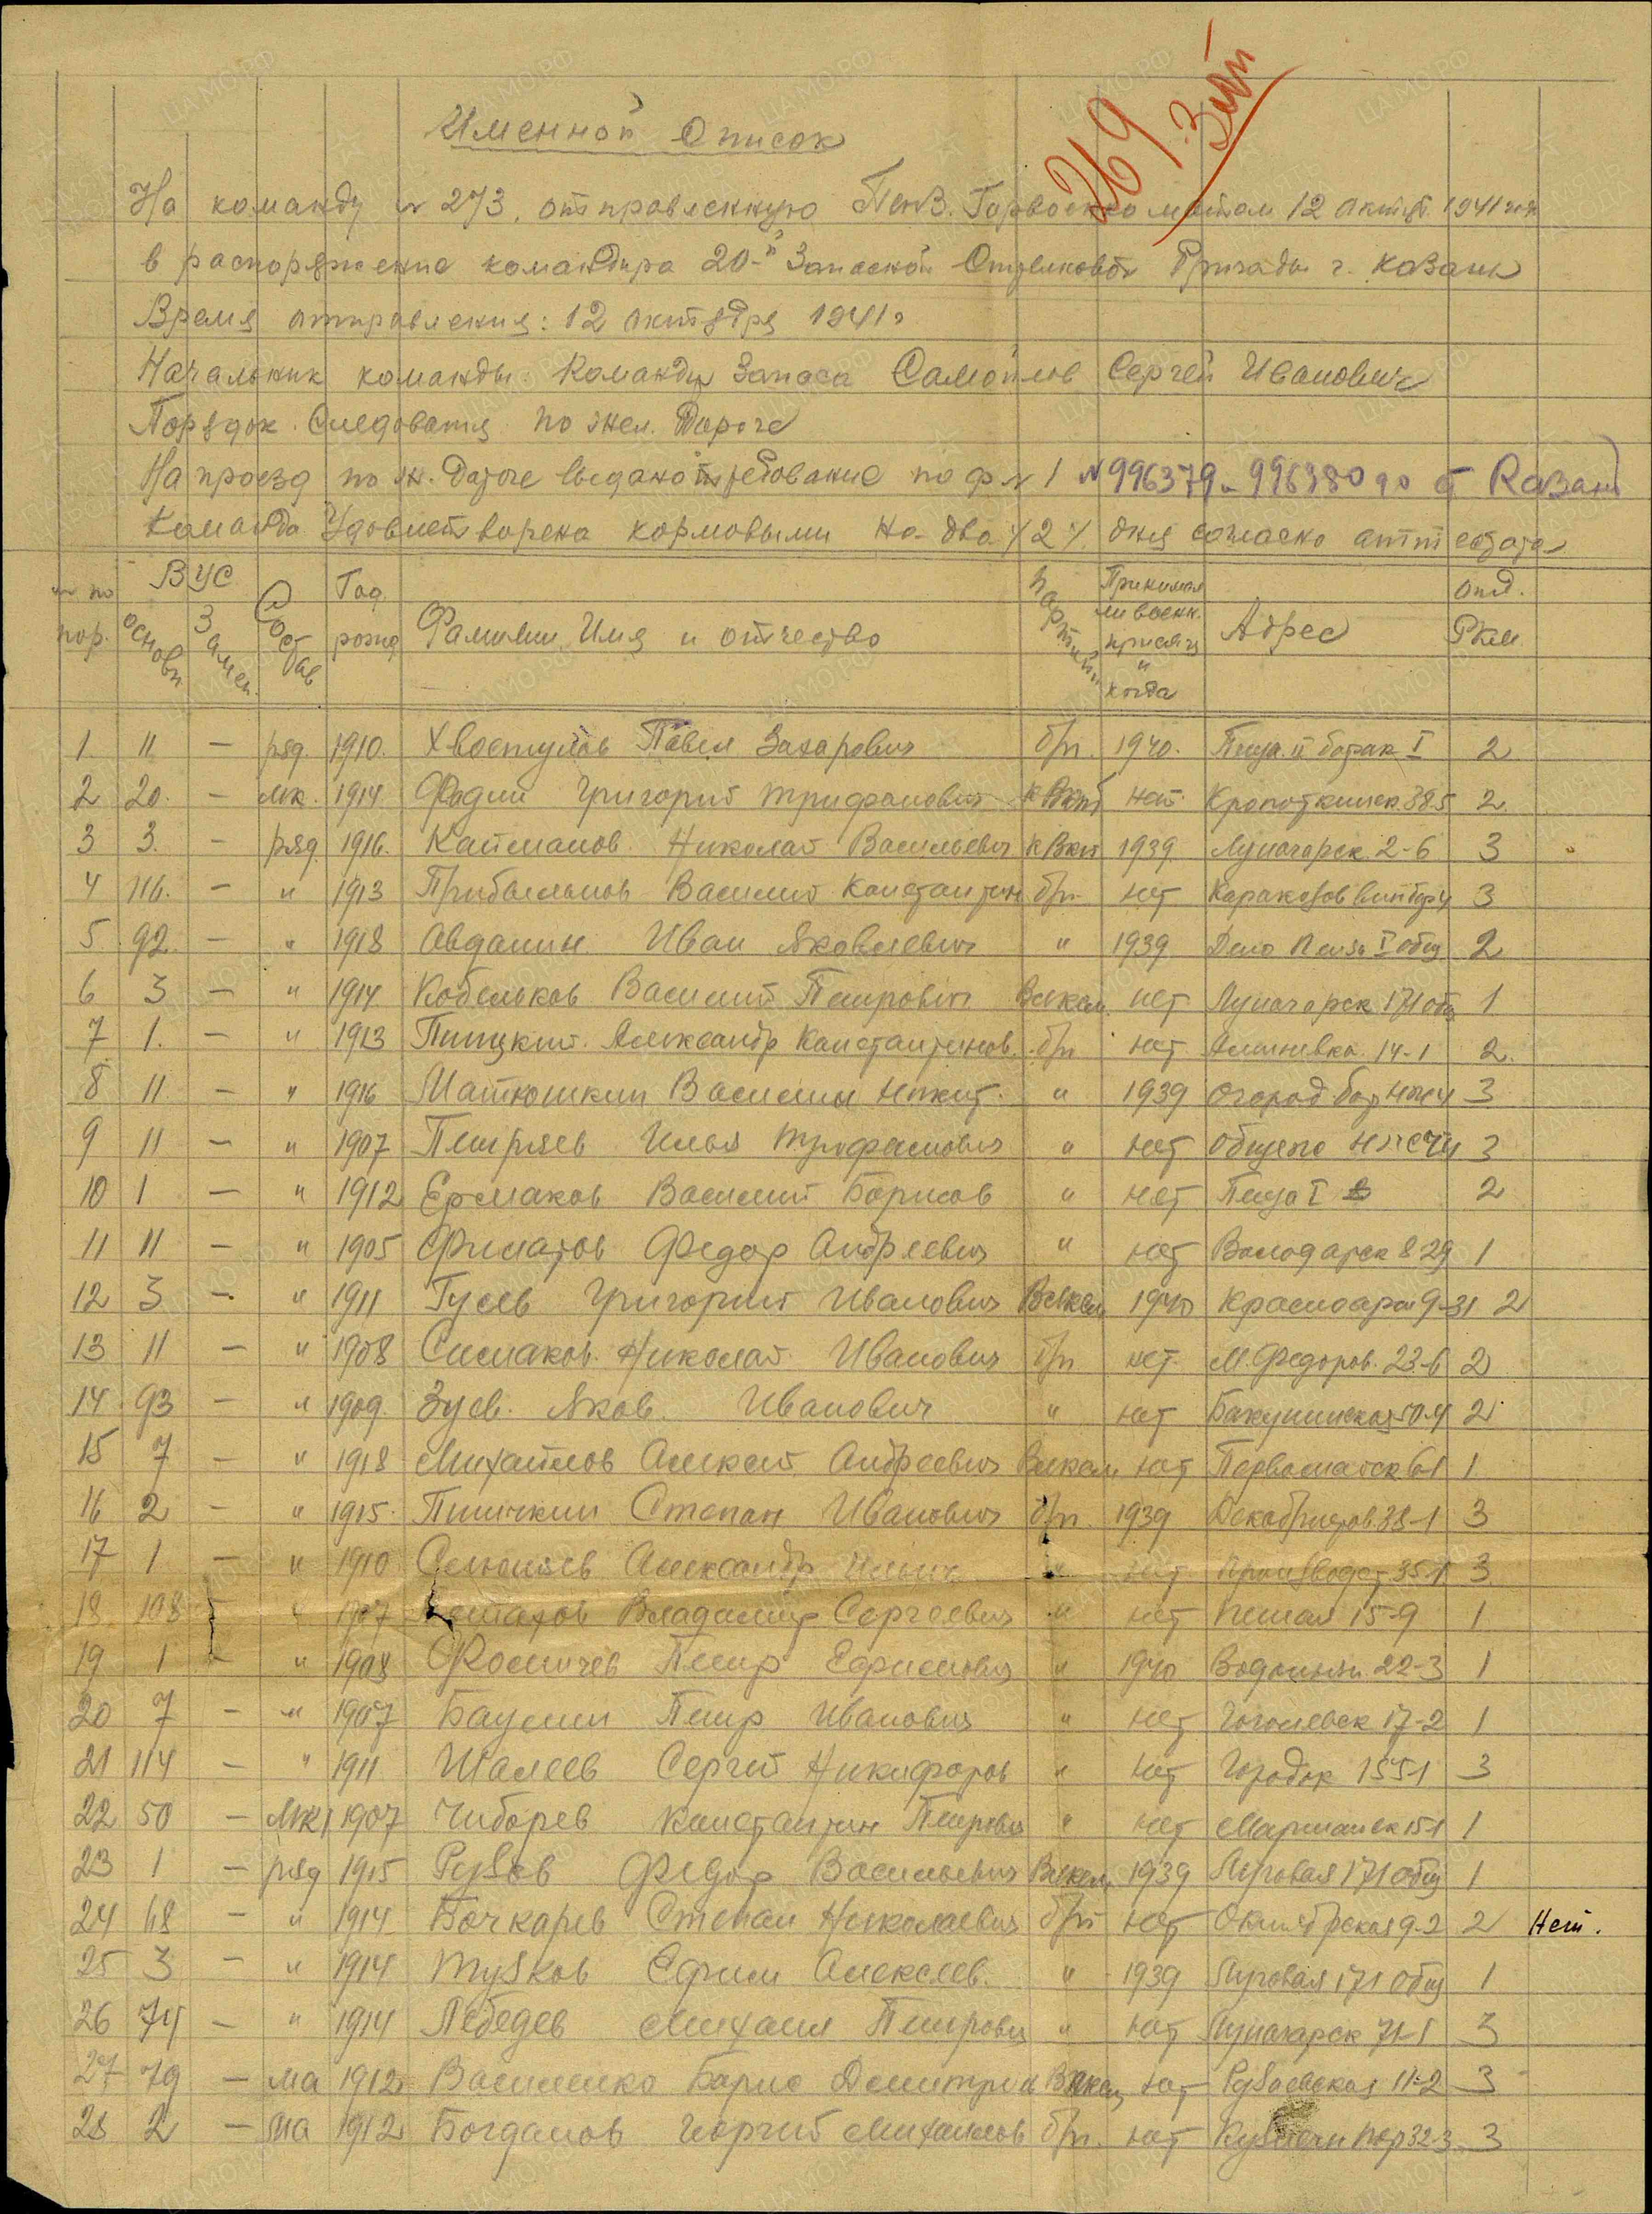 269
Именной Список
На команду № 273, отправленную Пенз. Горвоенкоматом 12 октяб. 1941 года
в распоряжение командира 20-й Запасной Стрелковой Бригады г. Казань
Время отправления: 12 октября 1941 г
Начальник команды: Командир Запаса Самойлов Сергей Иванович
Порядок Следования по жел. Дороге
На проезд по ж. Дороге выдано требование по ф № 1 № 996379-996380 до ст Казань
Команда Удовлетворена кормовыми на два /2/ дня согласно аттестата
№ по пор. ВУС основн Замен. Состав Год рожд Фамилия, Имя и отчество Партийн Принимал ли воен. присягу и когда Адрес отд. Ркм
1. 11 — ряд. 1910. Хвостунов Павел Захарович б/п. 1940. барак I 2
2 20. — мк. 1914 Фадин Григорий Трифонович к ВКПб нет Кропоткинск. 385 2
3 3. — ряд 1916. Кайманов Николай Васильевич к Вкп 1939 Луначарск. 2-6 3
4 — " 1913 Прибыльнов Василий Константин б/п. нет 3
5 92. — " 1918 Авдонин Иван Яковлевич " 1939 Депо Пенза I общ 2
6 3 — " 1914 Кобельков Василий Петрович Влксм нет Луначарск 171 общ 1
7 1. — " 1913 Александр Константинов. б/п нет 14-1 2.
8 11 — " 1916 Матюшкин Василий Никит. " 1939 Огород 3
9 11 — " 1907 Петряев Илья Трофимович " нет 3
10 1 — " 1912 Ермаков Василий Борисов " нет Пенза I 2
11 11 — " 1905 Филатов Федор Андреевич " нет Володарск 8 29 1
12 3 — " 1911 Гусев Григорий Иванович Влксм 1940 Красноарм 9-31 2
13 11 — " 1908 Симаков Николай Иванович б/п нет. М. Федоров. 23-6 2
14 93 — " 1909. Зуев. Яков. Иванович " нет Бакунинская 50-4 2
15 7 — " 1918 Михайлов Алексей Андреевич Влксм нет Первомайск 6-1 1
16 2 — " 1915. Пичкин Степан Иванович б/п. 1939 Декабристов. 38-1 3
17 1 — " 1910 Александр Ильич " нет Производст 35-1 3
18 108 — " 1907 Владимир Сергеевич " нет 15-9 1
19 1 — " 1908 Фомичев Петр Ефимович " 1940 22-3 1
20 7 — " 1907 Баулин Петр Иванович " нет Гоголевск 17-2 1
21 114 — " 1911 Шалеев Сергей Никифоров " нет Городок 3
22 50 — Мк 1907 Чиборев Константин Петрович " нет 1
23 1 — ряд 1915 Рубцов Федор Васильевич Влксм 1939 Луговая 171 общ 1
24 68 — " 1914 Бочкарев Степан Николаевич б/п нет Октябрьская 9-2 2 Нет.
25 3 — " 1914 Тузков Ефим Алексеев. " 1939 Луговая 171 общ 1
26 74 — " 1914 Лебедев Михаил Петрович " нет Луначарск 71-1 3
27 79 — ма 1912 Василенко Борис Дмитриев Влксм нет 11-2 3
28 2 — ма 1912 Богданов Георгий Михайлов б/п. нет пер 32-3 3